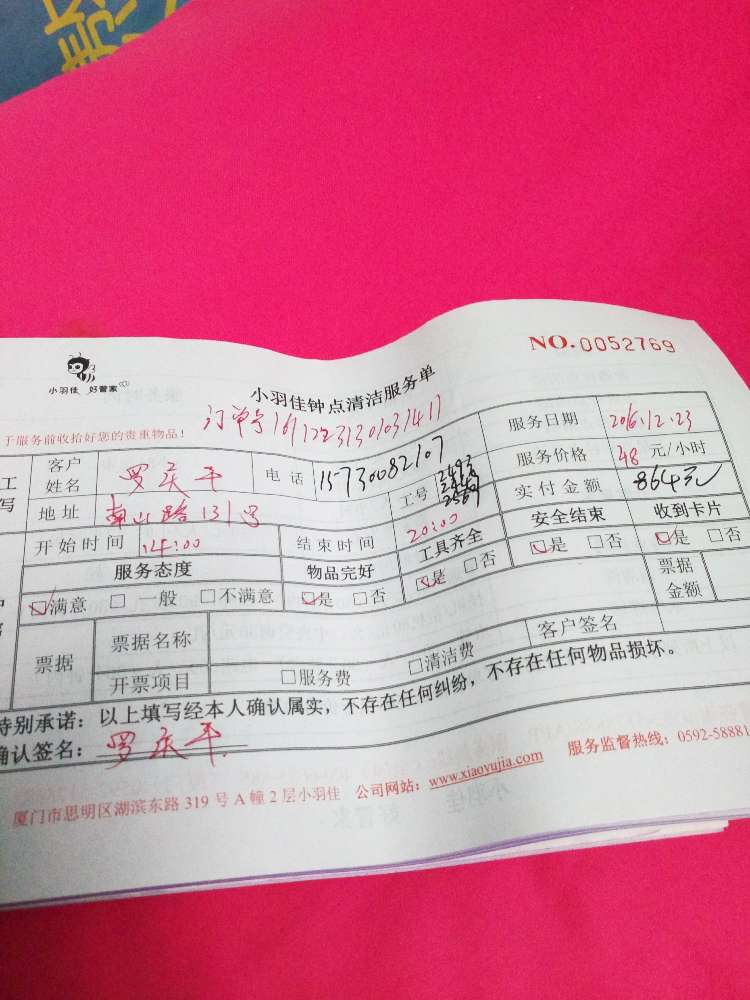 NO.0052769
小羽佳 好管家
小羽佳钟点清洁服务单
于服务前收拾好您的贵重物品！
订单号161223130103141 1
服务日期 2016.12.23
客户姓名 罗庆平 电话 15730082107 工号 服务价格 48 元/小时
地址 南山路131号 实付金额 864元
开始时间 14:00 结束时间 20:00 工具齐全 安全结束 收到卡片
服务态度 物品完好 是 否 是 否 是 否
满意 一般 不满意 是 否 票据金额
票据 票据名称 客户签名
开票项目 服务费 清洁费
特别承诺：以上填写经本人确认属实，不存在任何纠纷，不存在任何物品损坏。
确认签名：罗庆平
厦门市思明区湖滨东路 319 号 A 幢 2 层小羽佳 公司网站：www.xiaoyujia.com 服务监督热线：0592-58881